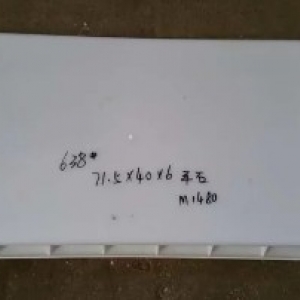 638#
71.5×40×6 平石
M1480